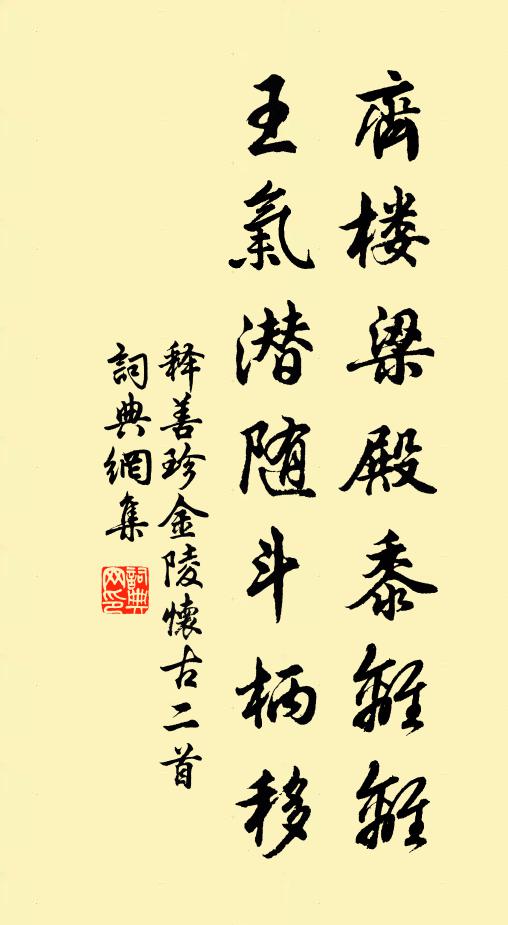 齊楼梁殿黍離離
王氣潜随斗柄移
释善珍金陵懷古二首
詞典網集
詞典网印